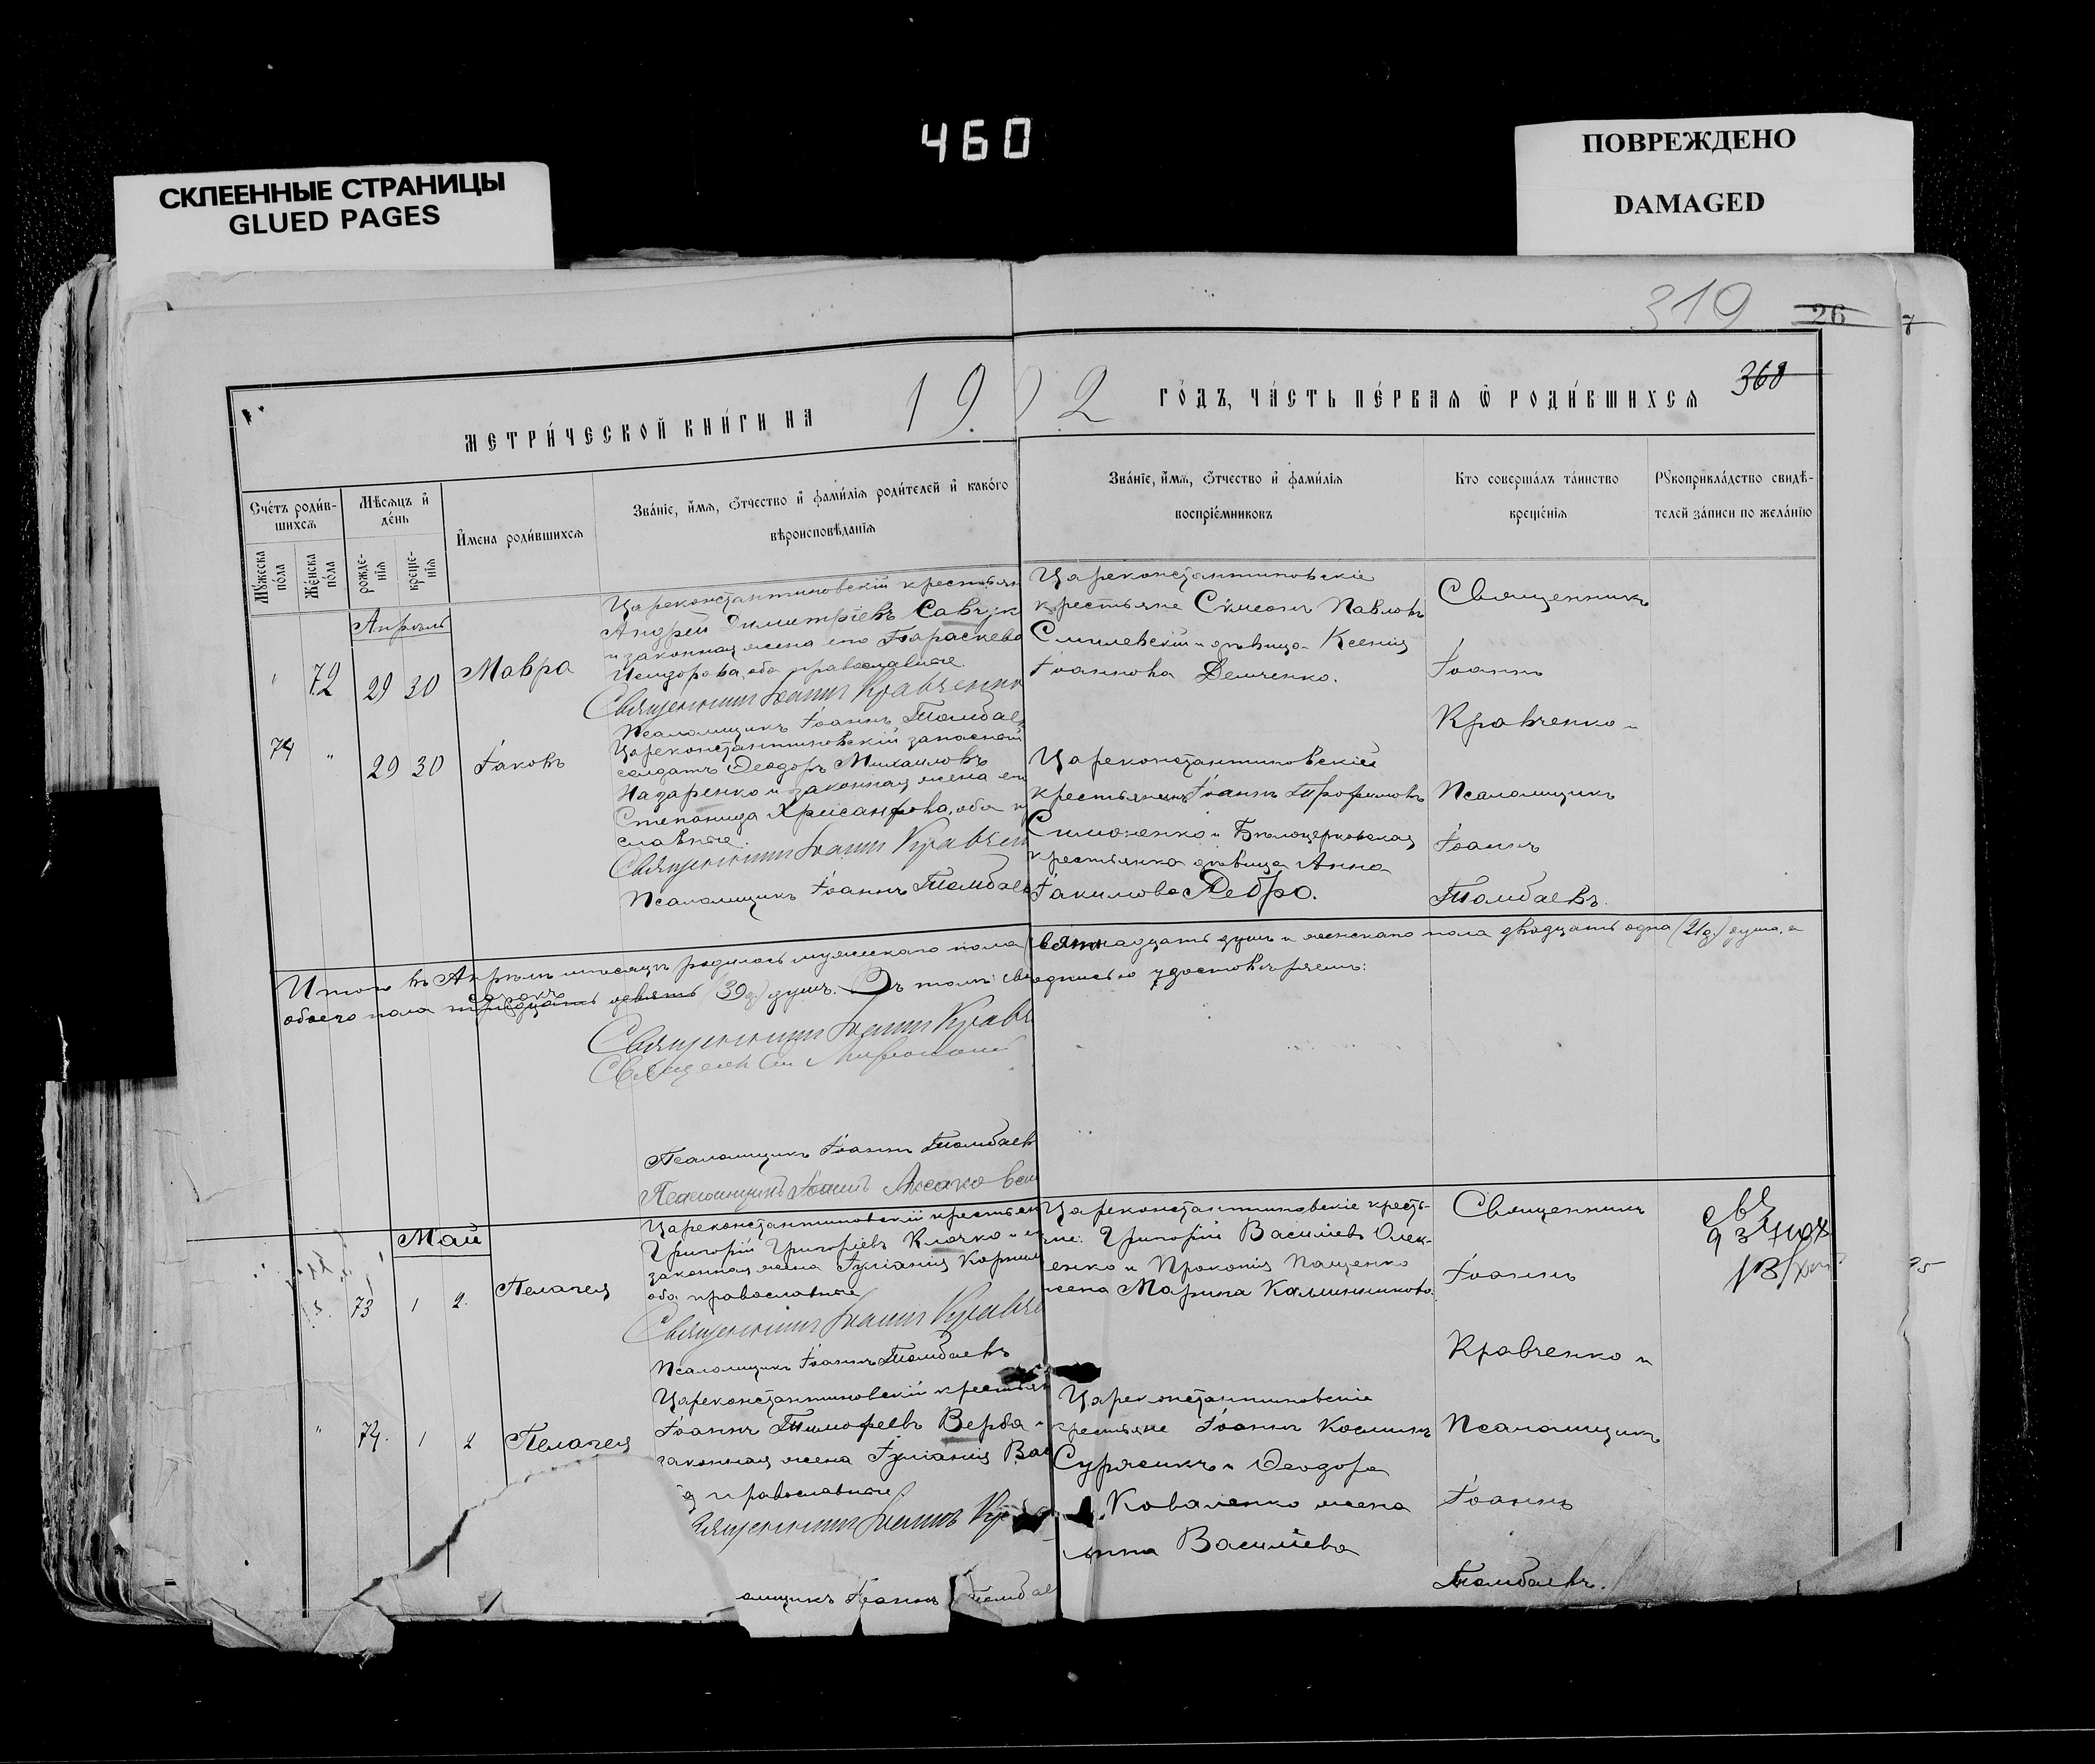 460
СКЛЕЕННЫЕ СТРАНИЦЫ
GLUED PAGES
ПОВРЕЖДЕНО
DAMAGED
319
26
7
368
МЕТРИ́ЧЕСКОЙ КНИ́ГИ НА 1902 ГО́ДЪ, ЧА́СТЬ ПЕ́РВАЯ Ѡ РОДИ́ВШИХСЯ
Сче́тъ роди́в-
шихсѧ
Мѣ́сѧцъ и҆
де́нь
И҆мена роди́вшихсѧ
Зва́нїе, и҆́мѧ, ѻ҆́тчество и҆ фами́лїѧ роди́телей и҆ како́гѡ
вѣроисповѣ́данїѧ
Зва́нїе, и҆́мѧ, ѻ҆́тчество и҆ фами́лїѧ
воспрїе́мниковъ
Кто соверша́лъ та́инство
креще́нїѧ
Рꙋкоприкла́дство свидѣ́-
телей за́писи по жела́нїю
Мꙋ́жеска
по́ла
Же́нска
по́ла
рожде-
нїѧ
креще́-
нїѧ
Апрѣль
72
29 30
Мавра
Цареконстантиновскій крестьян
Андрей Димитріевъ Савчук
и законная жена его Параскева
Исидорова, оба православные.
Священникъ Іоаннъ Кравченко
Псаломщикъ Іоаннъ Томбаев
Цареконстантиновскіе
крестьяне Симеонъ Павловъ
Смилевскій и дѣвица Ксенія
Іоаннова Демченко.
Священникъ
Іоаннъ
Кравченко и
74 " 29 30
Іаковъ
Цареконстантиновскій запасной
солдатъ Ѳеодоръ Михаиловъ
Назаренко и законная жена его
Степанида Хрисанфова, оба п
славные.
Священникъ Іоаннъ Кравчен
Псаломщикъ Іоаннъ Томбаев
Цареконстантиновскій
крестьянинъ Іоаннъ Трофимовъ
Симоненко и Бѣлоцерковская
крестьянка дѣвица Анна
Іакимова Ребро.
Псаломщикъ
Іоаннъ
Томбаевъ.
Итого въ Апрѣлѣ мѣсяцѣ родилось мужескаго пола надцать душъ и женскаго пола двадцать одна (21 д.) душа, а
сорокъ
обоего пола тридцать девять (39 д.) душъ. Въ томъ удостовѣряемъ:
Священникъ Іоаннъ Кравч
Псаломщикъ Іоаннъ Томбаев
Псаломщикъ Іоаннъ
Май
73 1 2
Пелагея
Цареконстантиновскій крестьян
Григорій Григоріевъ Клочко и е
законная жена Іуліанія Корнил
оба православные
Священникъ Іоаннъ Кравче
Псаломщикъ Іоаннъ Томбаевъ
Цареконстантиновскіе кресть-
яне: Григорій Василіевъ Олек-
енко и Прокопія Пащенко
жена Марина Калинникова.
Священникъ
Іоаннъ
Кравченко и
" 74. 1 2
Пелагея
Цареконстантиновскій крестьян
Іоаннъ Тимофеевъ Верба и
законная жена Іуліанія Вас
православные
Священникъ Іоаннъ Кр
омщикъ Іоаннъ Томбае
Цареконстантиновскіе
крестьяне Іоаннъ Косминъ
Сурженкъ и Ѳеодора
Коваленко жена
Анна Василіева
Псаломщикъ
Іоаннъ
Томбаевъ.